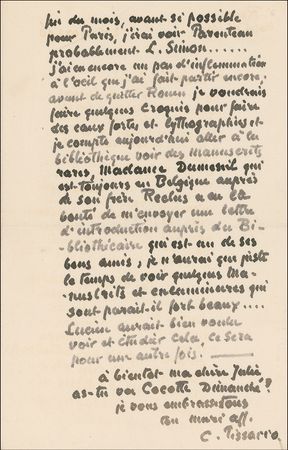 fin du mois, avant si possible
pour Paris, j'irai voir Parenteau
probablement L. Simon......
j'ai encore un peu d'inflammation
à l'œil que j'ai fait partir encore,
avant de quitter Rouen je voudrais
faire quelques croquis pour faire
des eaux fortes et lythographies et
je compte aujourd'hui aller à la
bibliothèque voir des manuscrits
rares, Madame Dumesnil qui
est toujours en Belgique auprès
de son frère Reclus a eu la
bonté de m'envoyer une lettre
d'introduction auprès du Bi-
bliothécaire qui est un de ses
bons amis, je n'aurai que juste
le temps de voir quelques ma-
nuscrits et enluminures qui
sont parait-il fort beaux....
Lucien aurait bien voulu
voir et étudier cela, ce sera
pour une autre fois.
à bientôt ma chère Julie
as-tu vu Cocotte Dimanche?
je vous embrasse tous
ton mari aff.
C. Pissarro